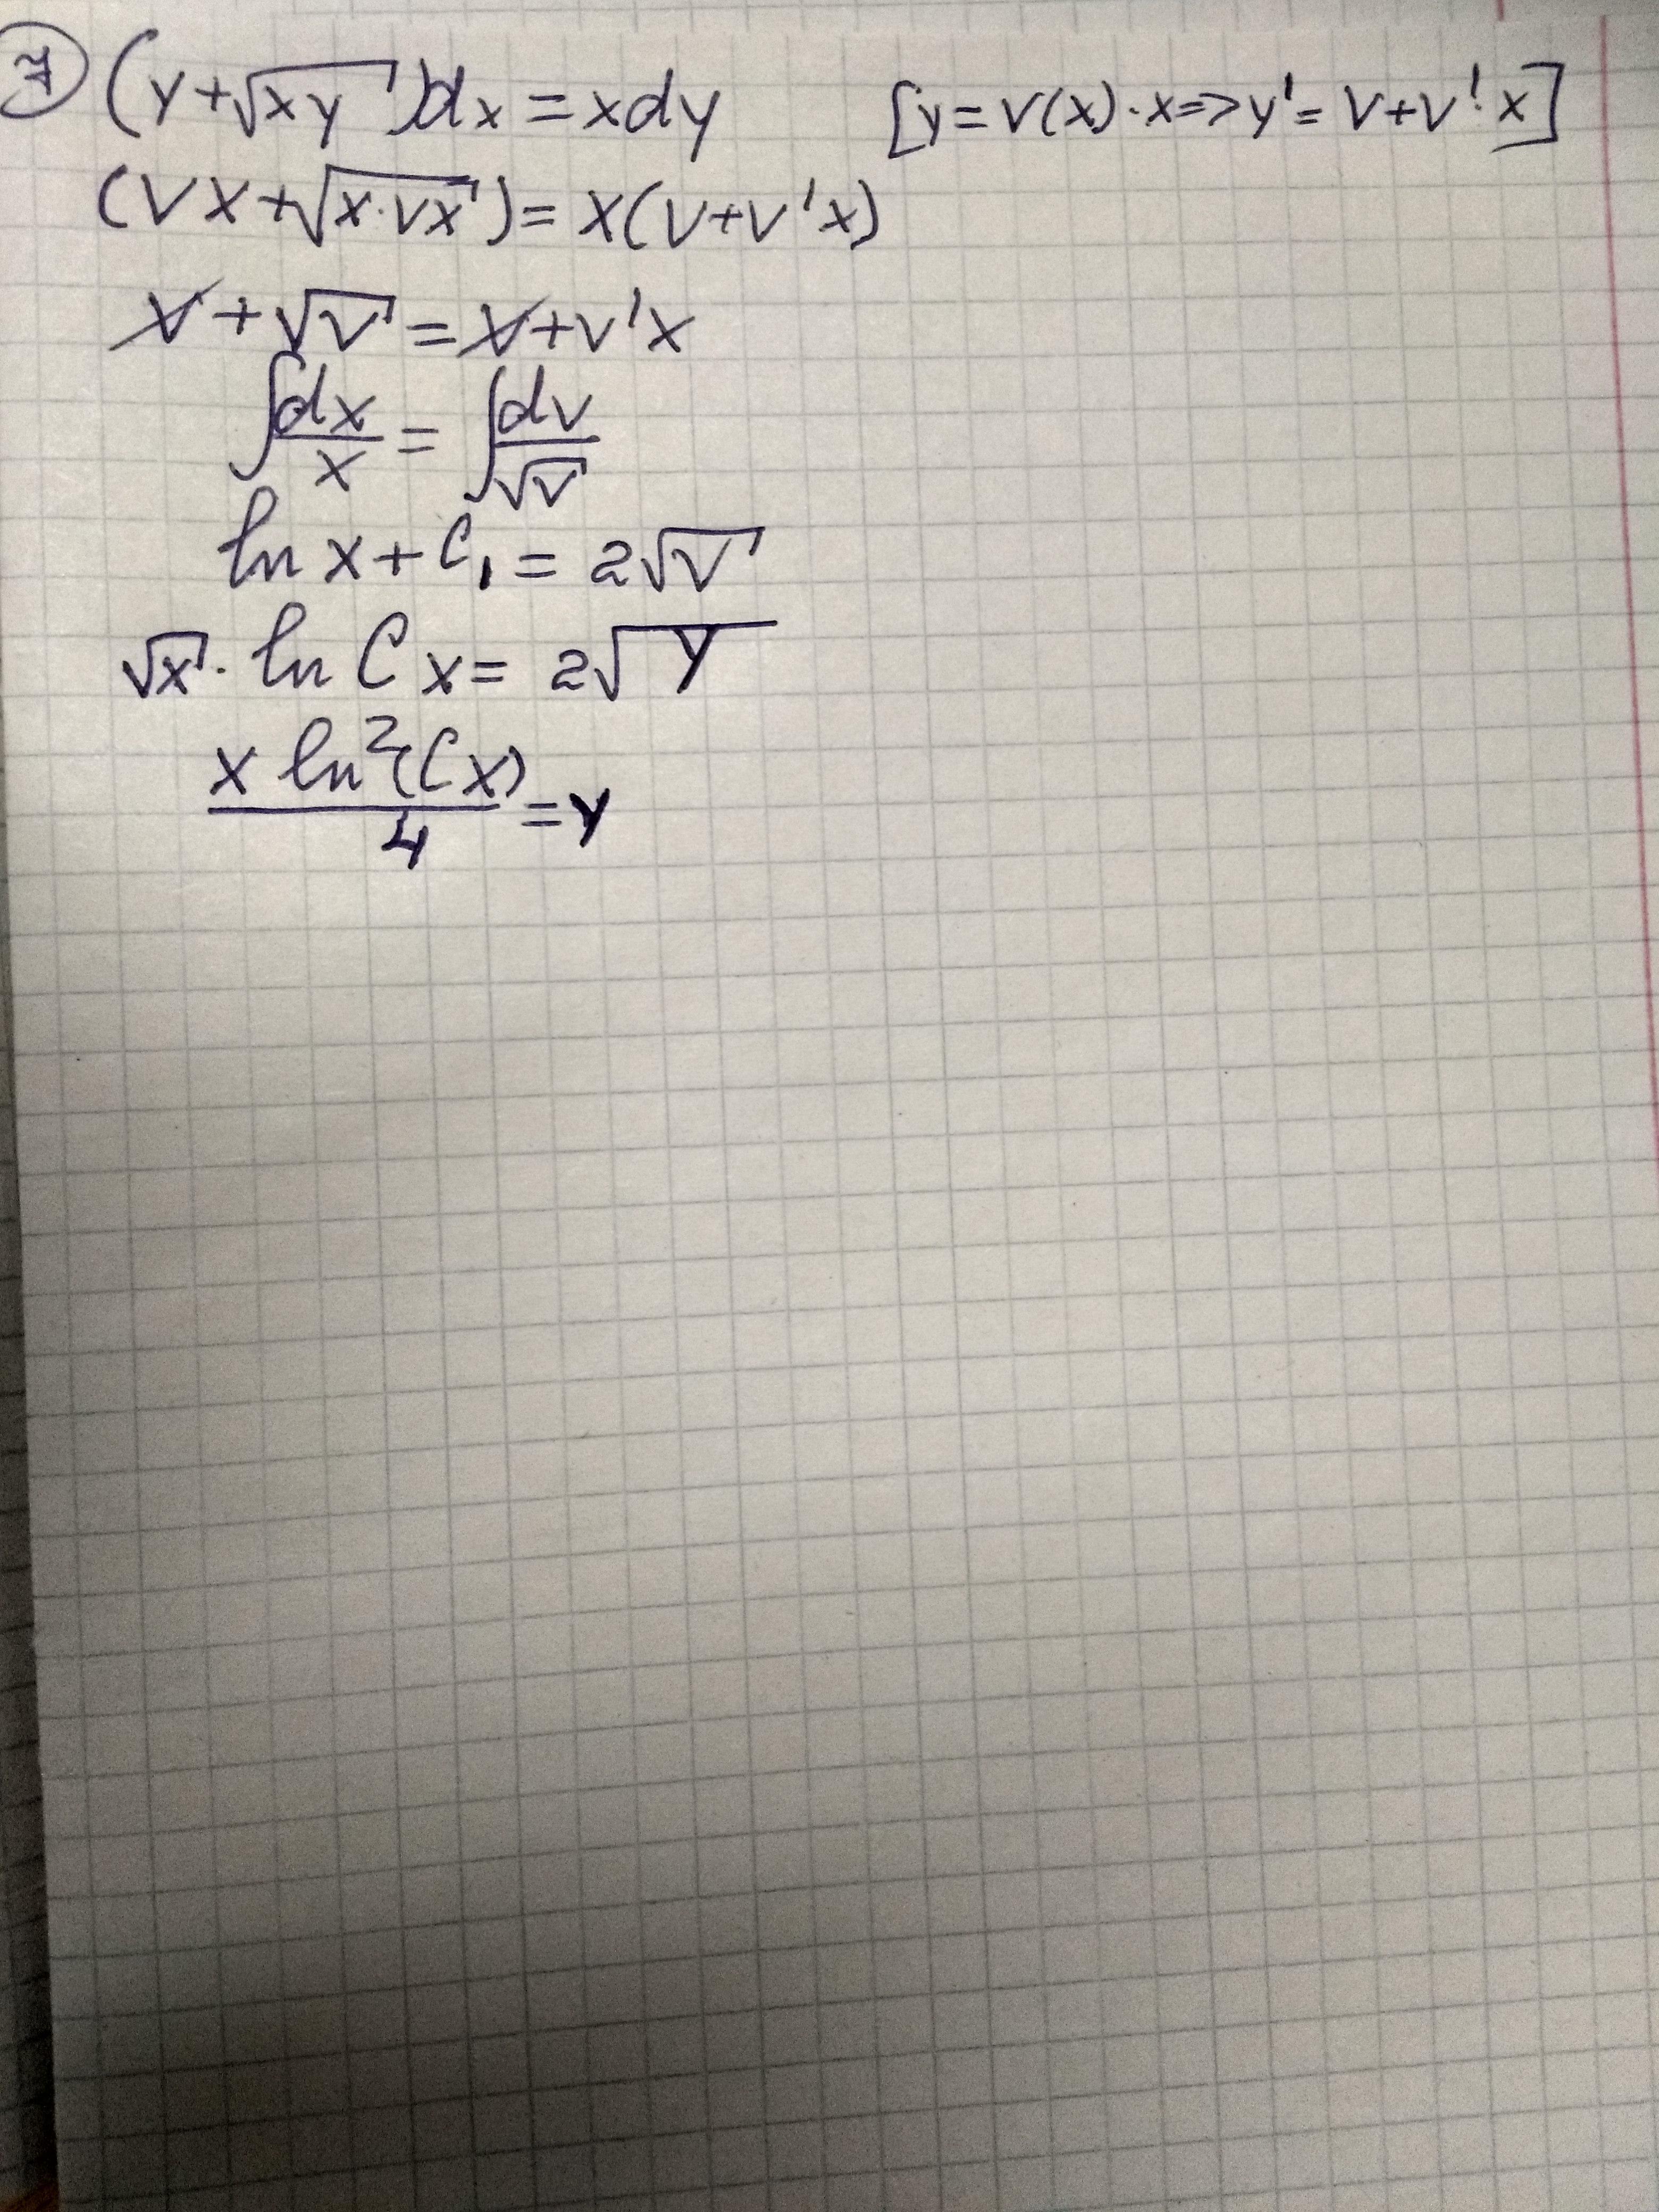 7 (y+√xy)dx = xdy [y=v(x)·x=>y'= v+v'·x]
(vx+√x·vx)= x(v+v'x)
v+√v = v+v'x
∫dx/x = ∫dv/√v
ln x+C₁ = 2√v
√x · ln Cx = 2√y
x ln²(Cx)/4 = y